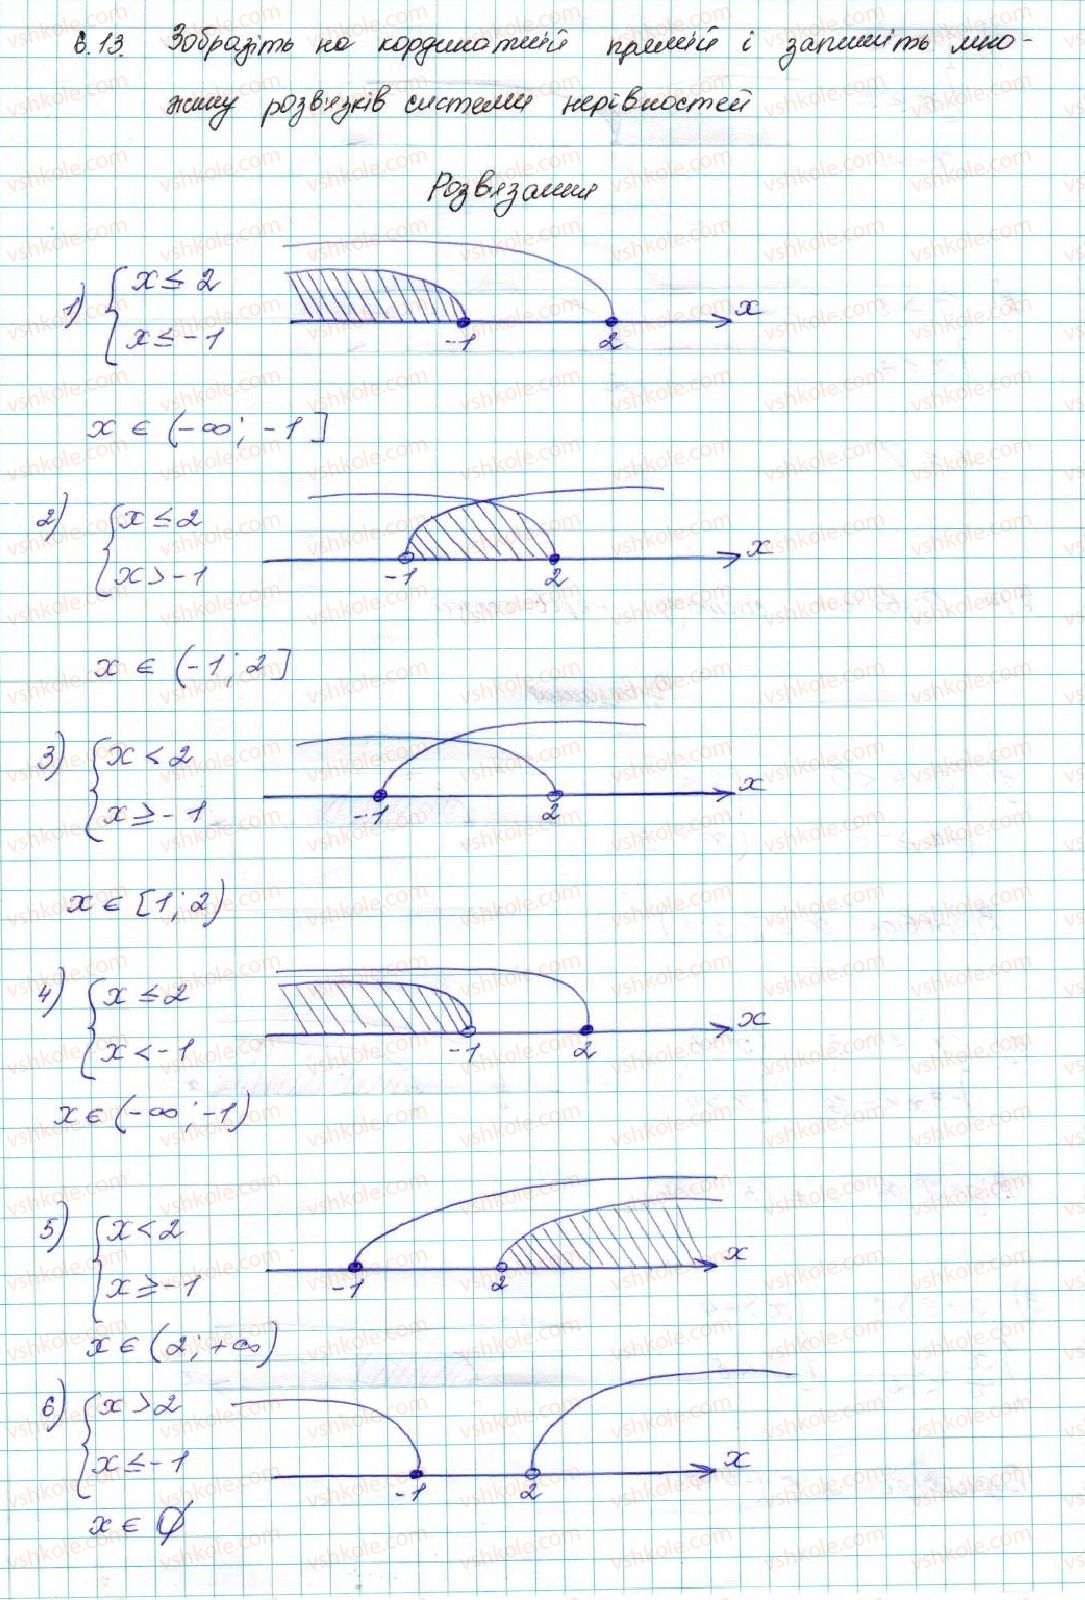 6.13. Зобразіть на кординатній прямій і запишіть мно-
жину розв'язків системи нерівностей
Розв'язання
1) { x ≤ 2
x ≤ -1
-1 2 x
x ∈ (-∞; -1]
2) { x ≤ 2
x > -1
-1 2 x
x ∈ (-1; 2]
3) { x < 2
x ≥ -1
-1 2 x
x ∈ [1; 2)
4) { x ≤ 2
x < -1
-1 2 x
x ∈ (-∞; -1)
5) { x < 2
x ≥ -1
-1 2 x
x ∈ (2; +∞)
6) { x > 2
x ≤ -1
-1 2 x
x ∈ ∅
vshkole.com